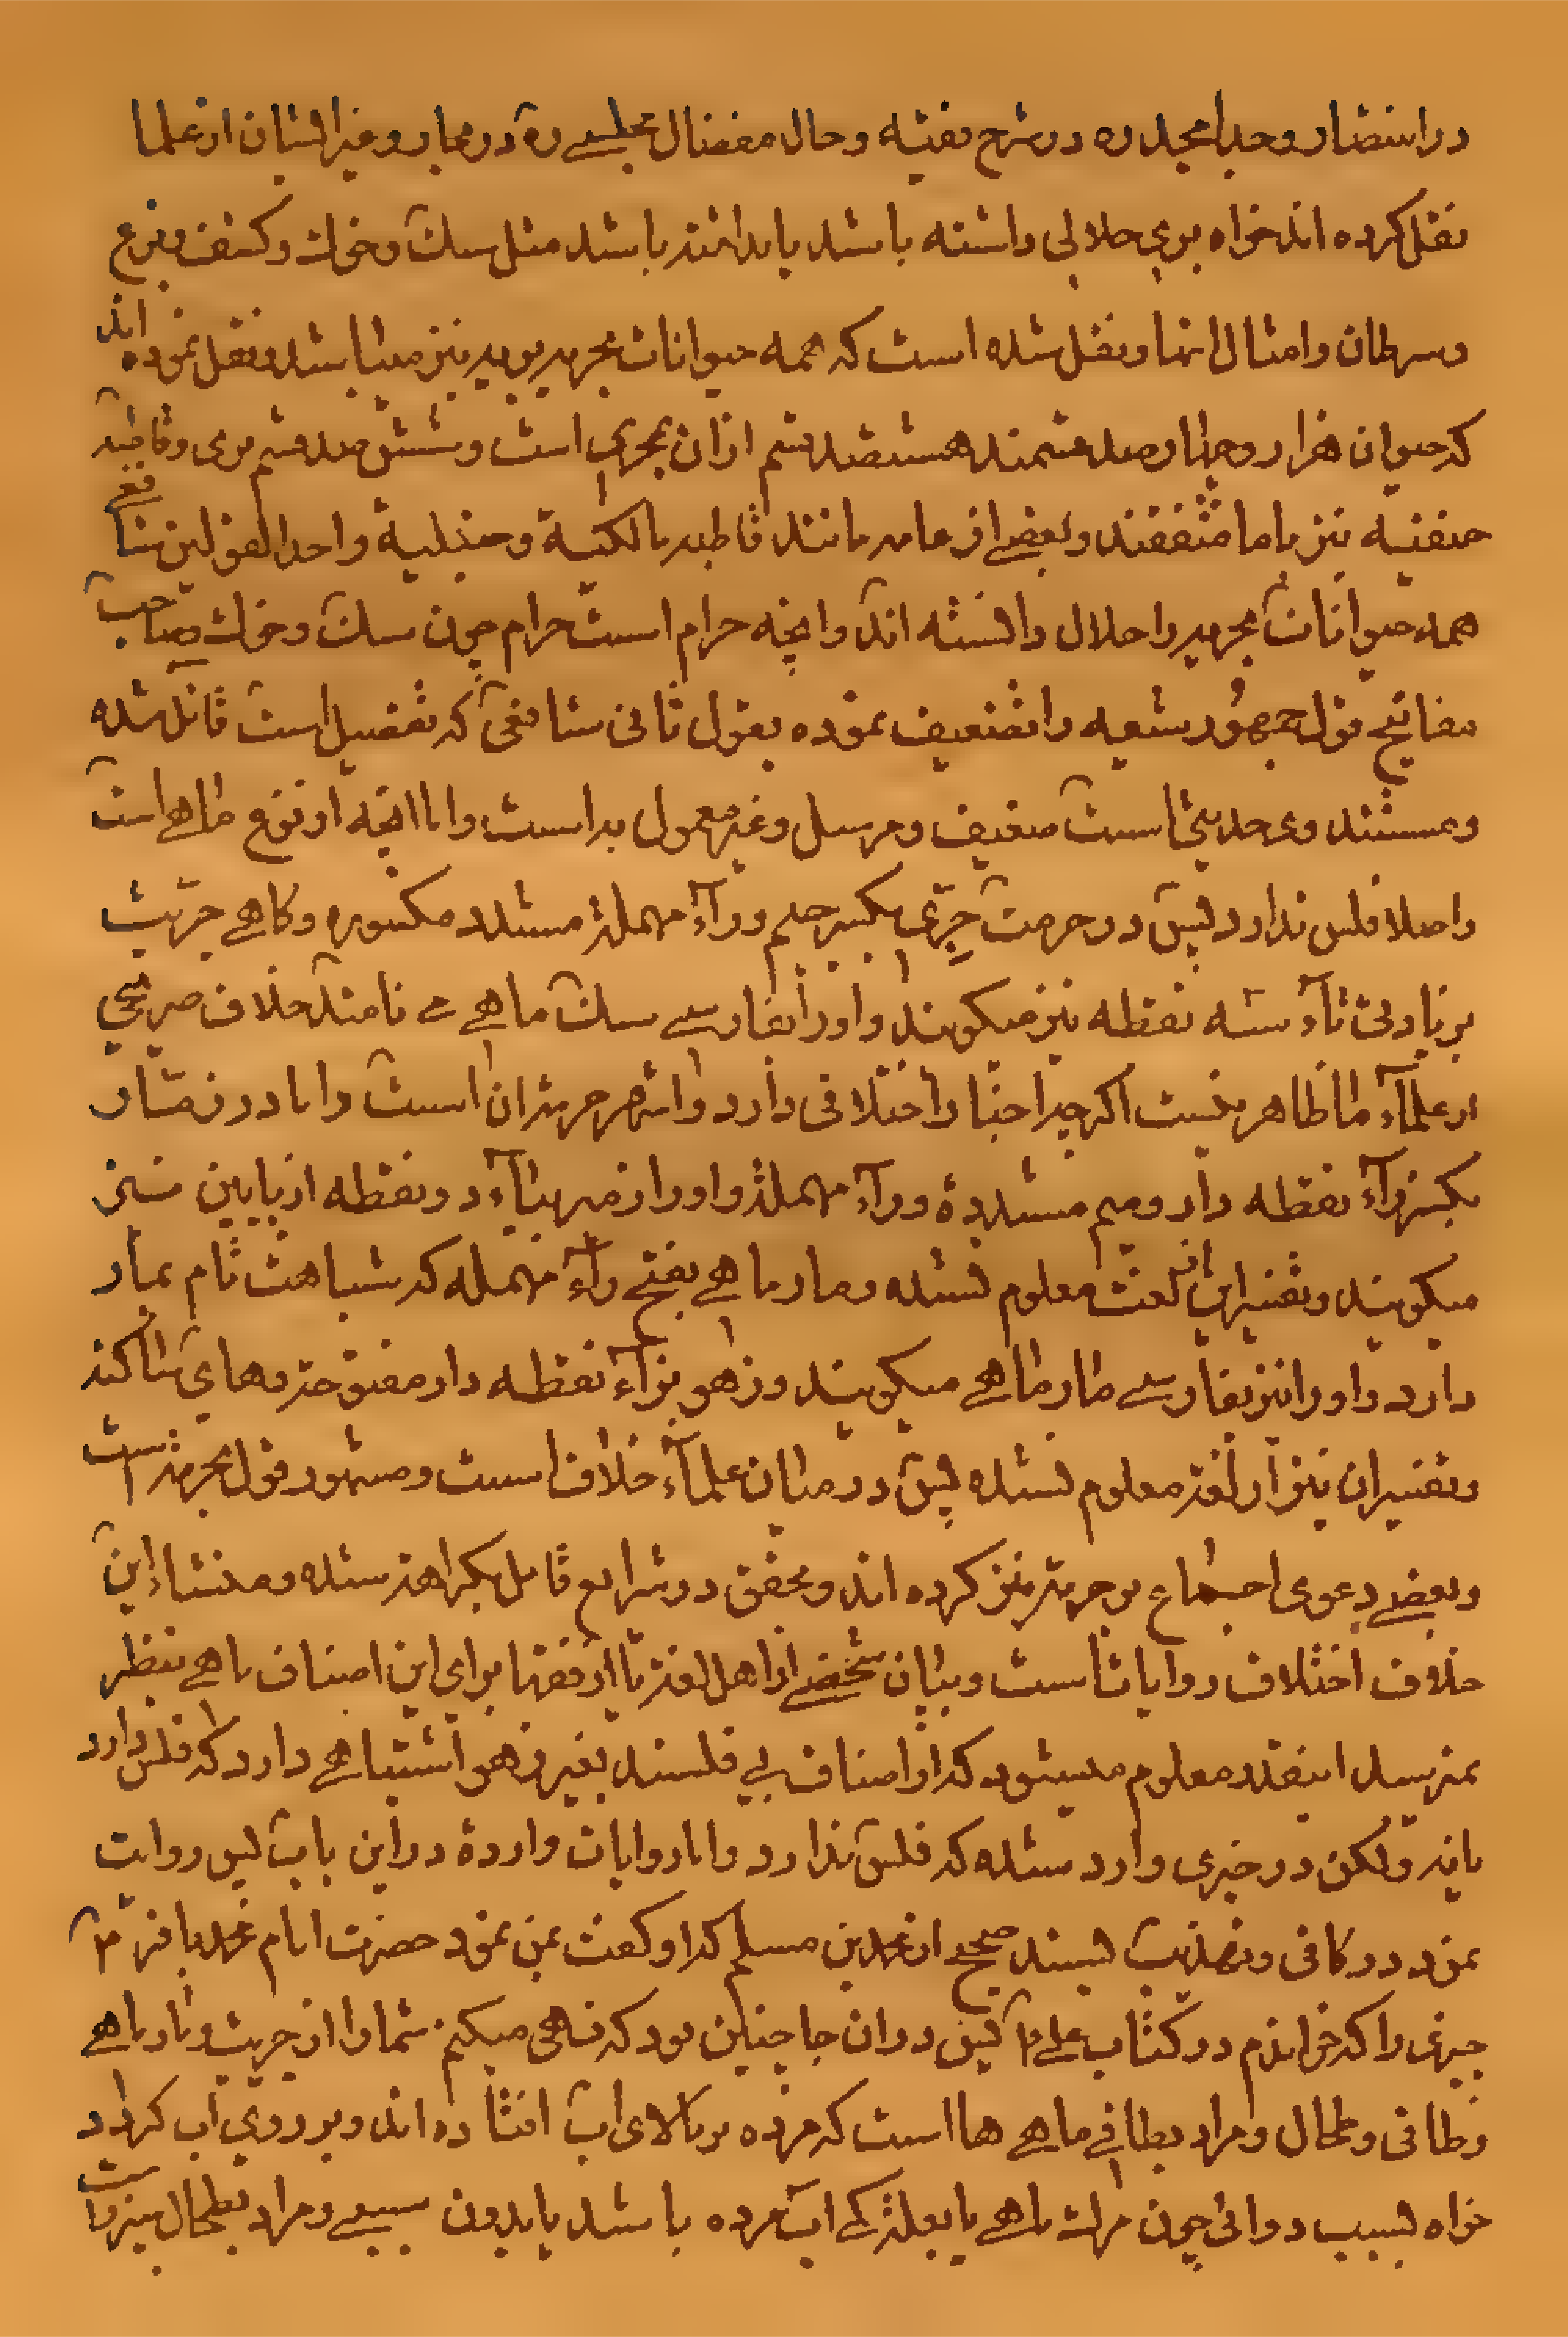 در انتصار و جد امجد ره در شرح نفتیه و خال مفضال مجلسی ره در بحار و غیر ایشان از علما
نقل کرده اند خواه بری حلالی داشته باشد یا نداشته باشد مثل سک و خوک و کشف و وزغ
و سرطان و امثال انها و نقل شده است که همه حیوانات بحریه بریه نیز میباشد و نقل نموده اند
که حیوان هزار و چهارصد قسمند هشتصد قسم ازان بحری است و ششصد قسم بری و قاطبه
حنفیه نیز با ما متفقند و بعضی از عامه مانند قاطبه مالکیة و حنبلیة و احد القولین شافعی
همه حیوانات بحریه را حلال دانسته اند و انچه حرام است حرام چون سک و خوک و صاحب
مفاتیح قول جمهور شیعه را تضعیف نموده بقول ثانی شافعی که تفصیل است قائل شده
و مستند وی حدیثی است ضعیف و مرسل و غیر معمول به است و اما انچه از نوع ماهی است
و اصلا فلس ندارد پس در حرمت جرّی بکسر جیم و رآء مهملة مشدد مکسوره و کاهی جرّیث
بزیادتی ثآء سه نقطه نیز میکویند و او را بفارسی سک ماهی می نامند خلاف صریحی
از علمآء ما ظاهر نیست اکرچه اخبار اختلافی دارد و اشهر حرمت ان است و اما در زمّار
بکسر زآء نقطه دار و میم مشددة و رآء مهملة و او را زمیر بیآء دو نقطه از پایین نیز
میکویند و تفسیر این از لغت معلوم نشده و مار ماهی بفتح رآء مهمله که شباهت تام بمار
دارد و او را نیز بفارسی مار ماهی میکویند و زهو بزآء نقطه دار مفتوحة و های ساکنه
و تفسیر ان نیز از لغة معلوم نشده پس در میان علمآء خلاف است و مشهور قول بحرمة است
و بعضی دعوی اجماع بر حرمة نیز کرده اند و محقق در شرایع قایل بکراهة شده و منشاء این
خلاف اختلاف روایات است و بیان شخصی از اهل لغة یا از فقها برای این اصناف ماهی بنظر
نمیرسد اینقدر معلوم میشود که از اصناف بی فلسند بغیر زهو اشتباهی دارد که فلس دارد
یا نه ولکن در خبری وارد شده که فلس ندارد و اما روایات واردة در این باب پس روایت
نمود در کافی و تهذیب بسند صحیح از محمد بن مسلم که او کفت بمن نمود حضرت امام محمد باقر ع
چیزی را که خواندم در کتاب علی ع پس در ان جا چنین بود که نهی میکنم شما را از جریث و مار ماهی
و طافی و طحال و مراد بطافی ماهی ها است که مرده بر بالای اب افتاده اند و بر روی اب کردد
خواه بسبب دوائی چون مرک ماهی یا بعلة کمی اب مرده باشد یا بدون سببی و مراد بطحال سپرز است